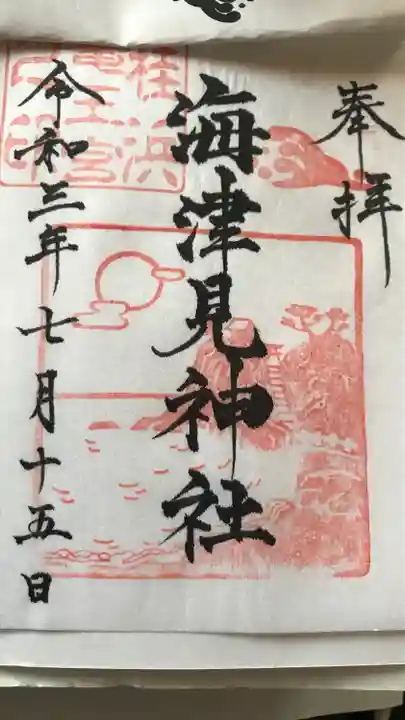 奉拝
海津見神社
令和三年七月十五日
桂浜
龍王宮
之印